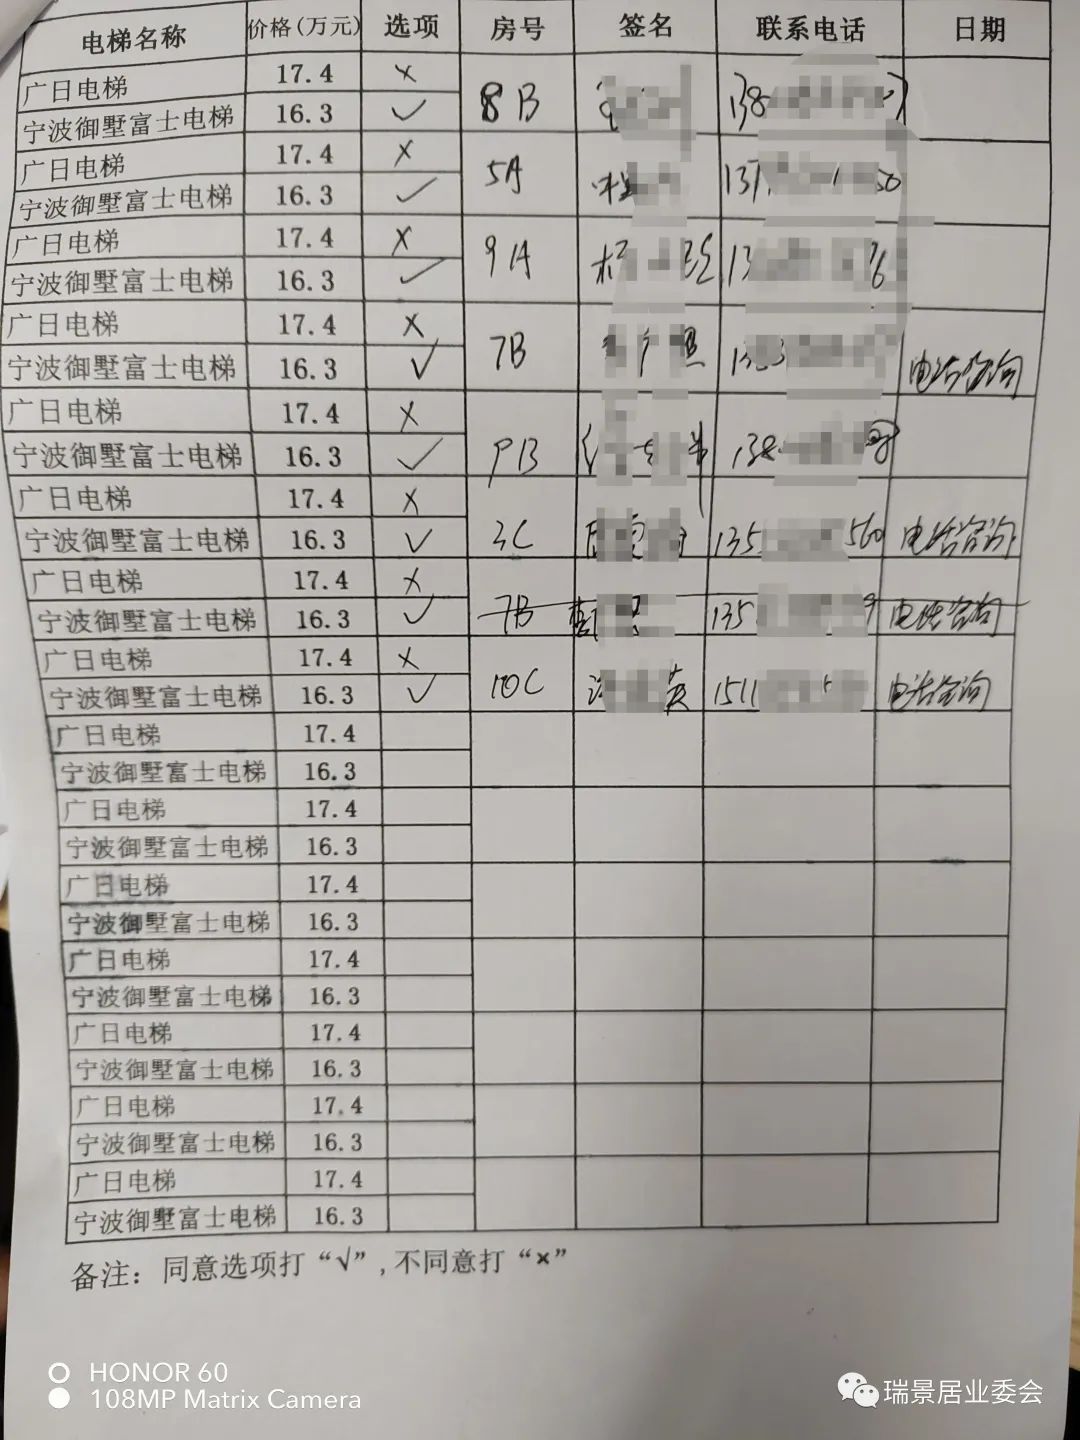 电梯名称 价格(万元) 选项 房号 签名 联系电话 日期
广日电梯 17.4 × 8B 138
宁波御墅富士电梯 16.3 √
广日电梯 17.4 × 5A 137
宁波御墅富士电梯 16.3 √
广日电梯 17.4 × 9A 13
宁波御墅富士电梯 16.3 √
广日电梯 17.4 × 7B
宁波御墅富士电梯 16.3 √ 电话咨询
广日电梯 17.4 × 9B 138
宁波御墅富士电梯 16.3 √
广日电梯 17.4 × 3C 135 560 电话咨询
宁波御墅富士电梯 16.3 √
广日电梯 17.4 × 7B 135 电话咨询
宁波御墅富士电梯 16.3 √
广日电梯 17.4 × 10C 英 1511 电话咨询
宁波御墅富士电梯 16.3 √
广日电梯 17.4
宁波御墅富士电梯 16.3
广日电梯 17.4
宁波御墅富士电梯 16.3
广日电梯 17.4
宁波御墅富士电梯 16.3
广日电梯 17.4
宁波御墅富士电梯 16.3
广日电梯 17.4
宁波御墅富士电梯 16.3
广日电梯 17.4
宁波御墅富士电梯 16.3
广日电梯 17.4
宁波御墅富士电梯 16.3
备注：同意选项打“√”,不同意打“×”
HONOR 60
108MP Matrix Camera
瑞景居业委会